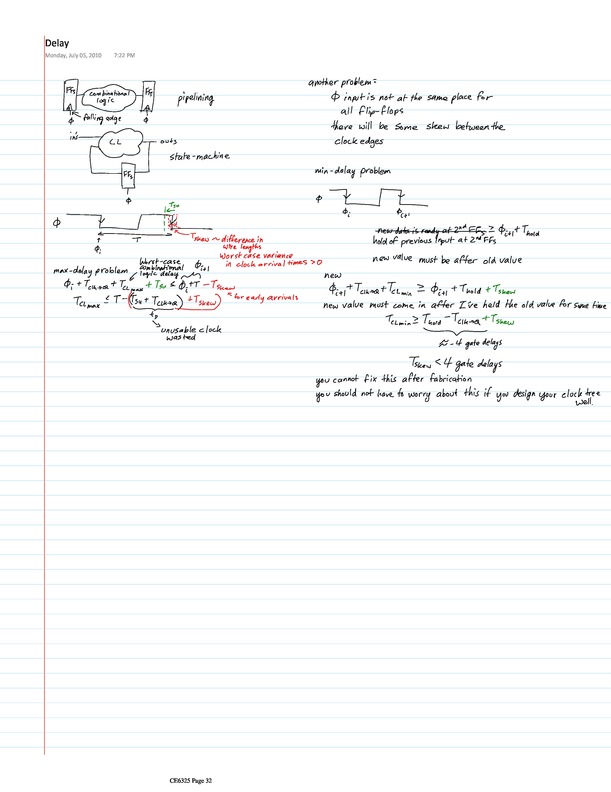 Delay
Monday, July 05, 2010 7:22 PM
FFs combinational logic FFs pipelining
ϕ falling edge ϕ
ins C.L outs
state-machine
FFs
ϕ
Tsu
ϕ
T
Tskew ~ difference in
wire lengths
worst case variance
in clock arrival times > 0
ϕi
ϕi+1
max-delay problem
worst-case
combinational
logic delay
ϕi + Tclk→Q + TCLmax + Tsu ≤ ϕi + T - Tskew
for early arrivals
TCLmax ≤ T - (Tsu + Tclk→Q + Tskew)
unusable clock
wasted
another problem:
ϕ input is not at the same place for
all flip-flops
there will be some skew between the
clock edges
min-delay problem
ϕ
ϕi ϕi+1
new data is ready at 2nd FFs ≥ ϕi+1 + Thold
hold of previous input at 2nd FFs
new value must be after old value
new
ϕi+1 + Tclk→Q + TCLmin ≥ ϕi+1 + Thold + Tskew
new value must come in after I've held the old value for some time
TCLmin ≥ Thold - Tclk→Q + Tskew
≈ -4 gate delays
Tskew < 4 gate delays
you cannot fix this after fabrication
you should not have to worry about this if you design your clock tree
well.
CE6325 Page 32